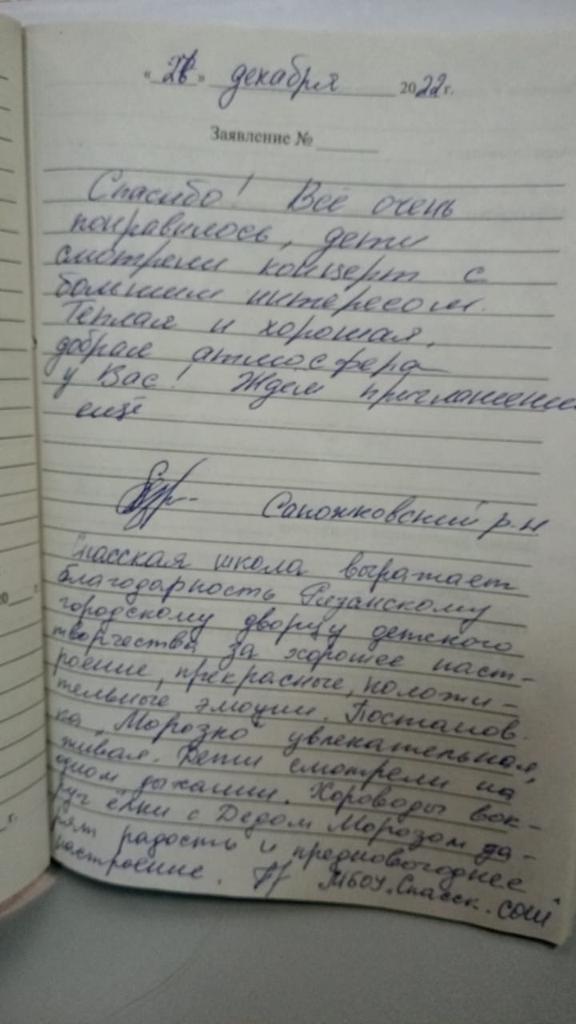 « 28 » декабря 2022 г.
Заявление №
Спасибо! Всё очень
понравилось, дети
смотрели концерт с
большим интересом.
Теплая и хорошая,
добрая атмосфера
у Вас! Ждем приглашение
ещё
Сапожковский р-н
Спасская школа выражает
благодарность Рязанскому
городскому дворцу детского
творчества за хорошее наст-
роение, прекрасные, положи-
тельные эмоции. Постанов.
ка „Морозко" увлекательная,
живая. Дети смотрели на
одном дыхании. Хороводы вок-
руг ёлки с Дедом Морозом да-
рят радость и предновогоднее
настроение. МБОУ „Спасск. СОШ"
20 г.
г.